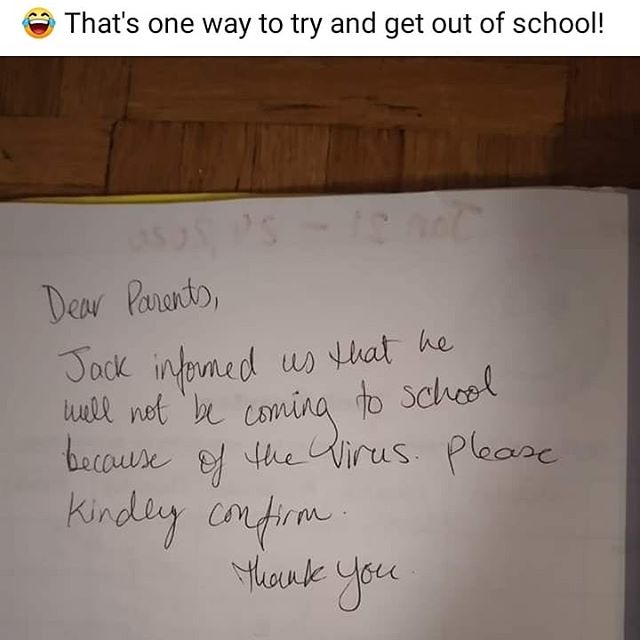 😂 That's one way to try and get out of school!
Jan 21 - 24, 2020
Dear Parents,
Jack informed us that he
will not be coming to school
because of the virus. Please
Kindley confirm.
Thank you.